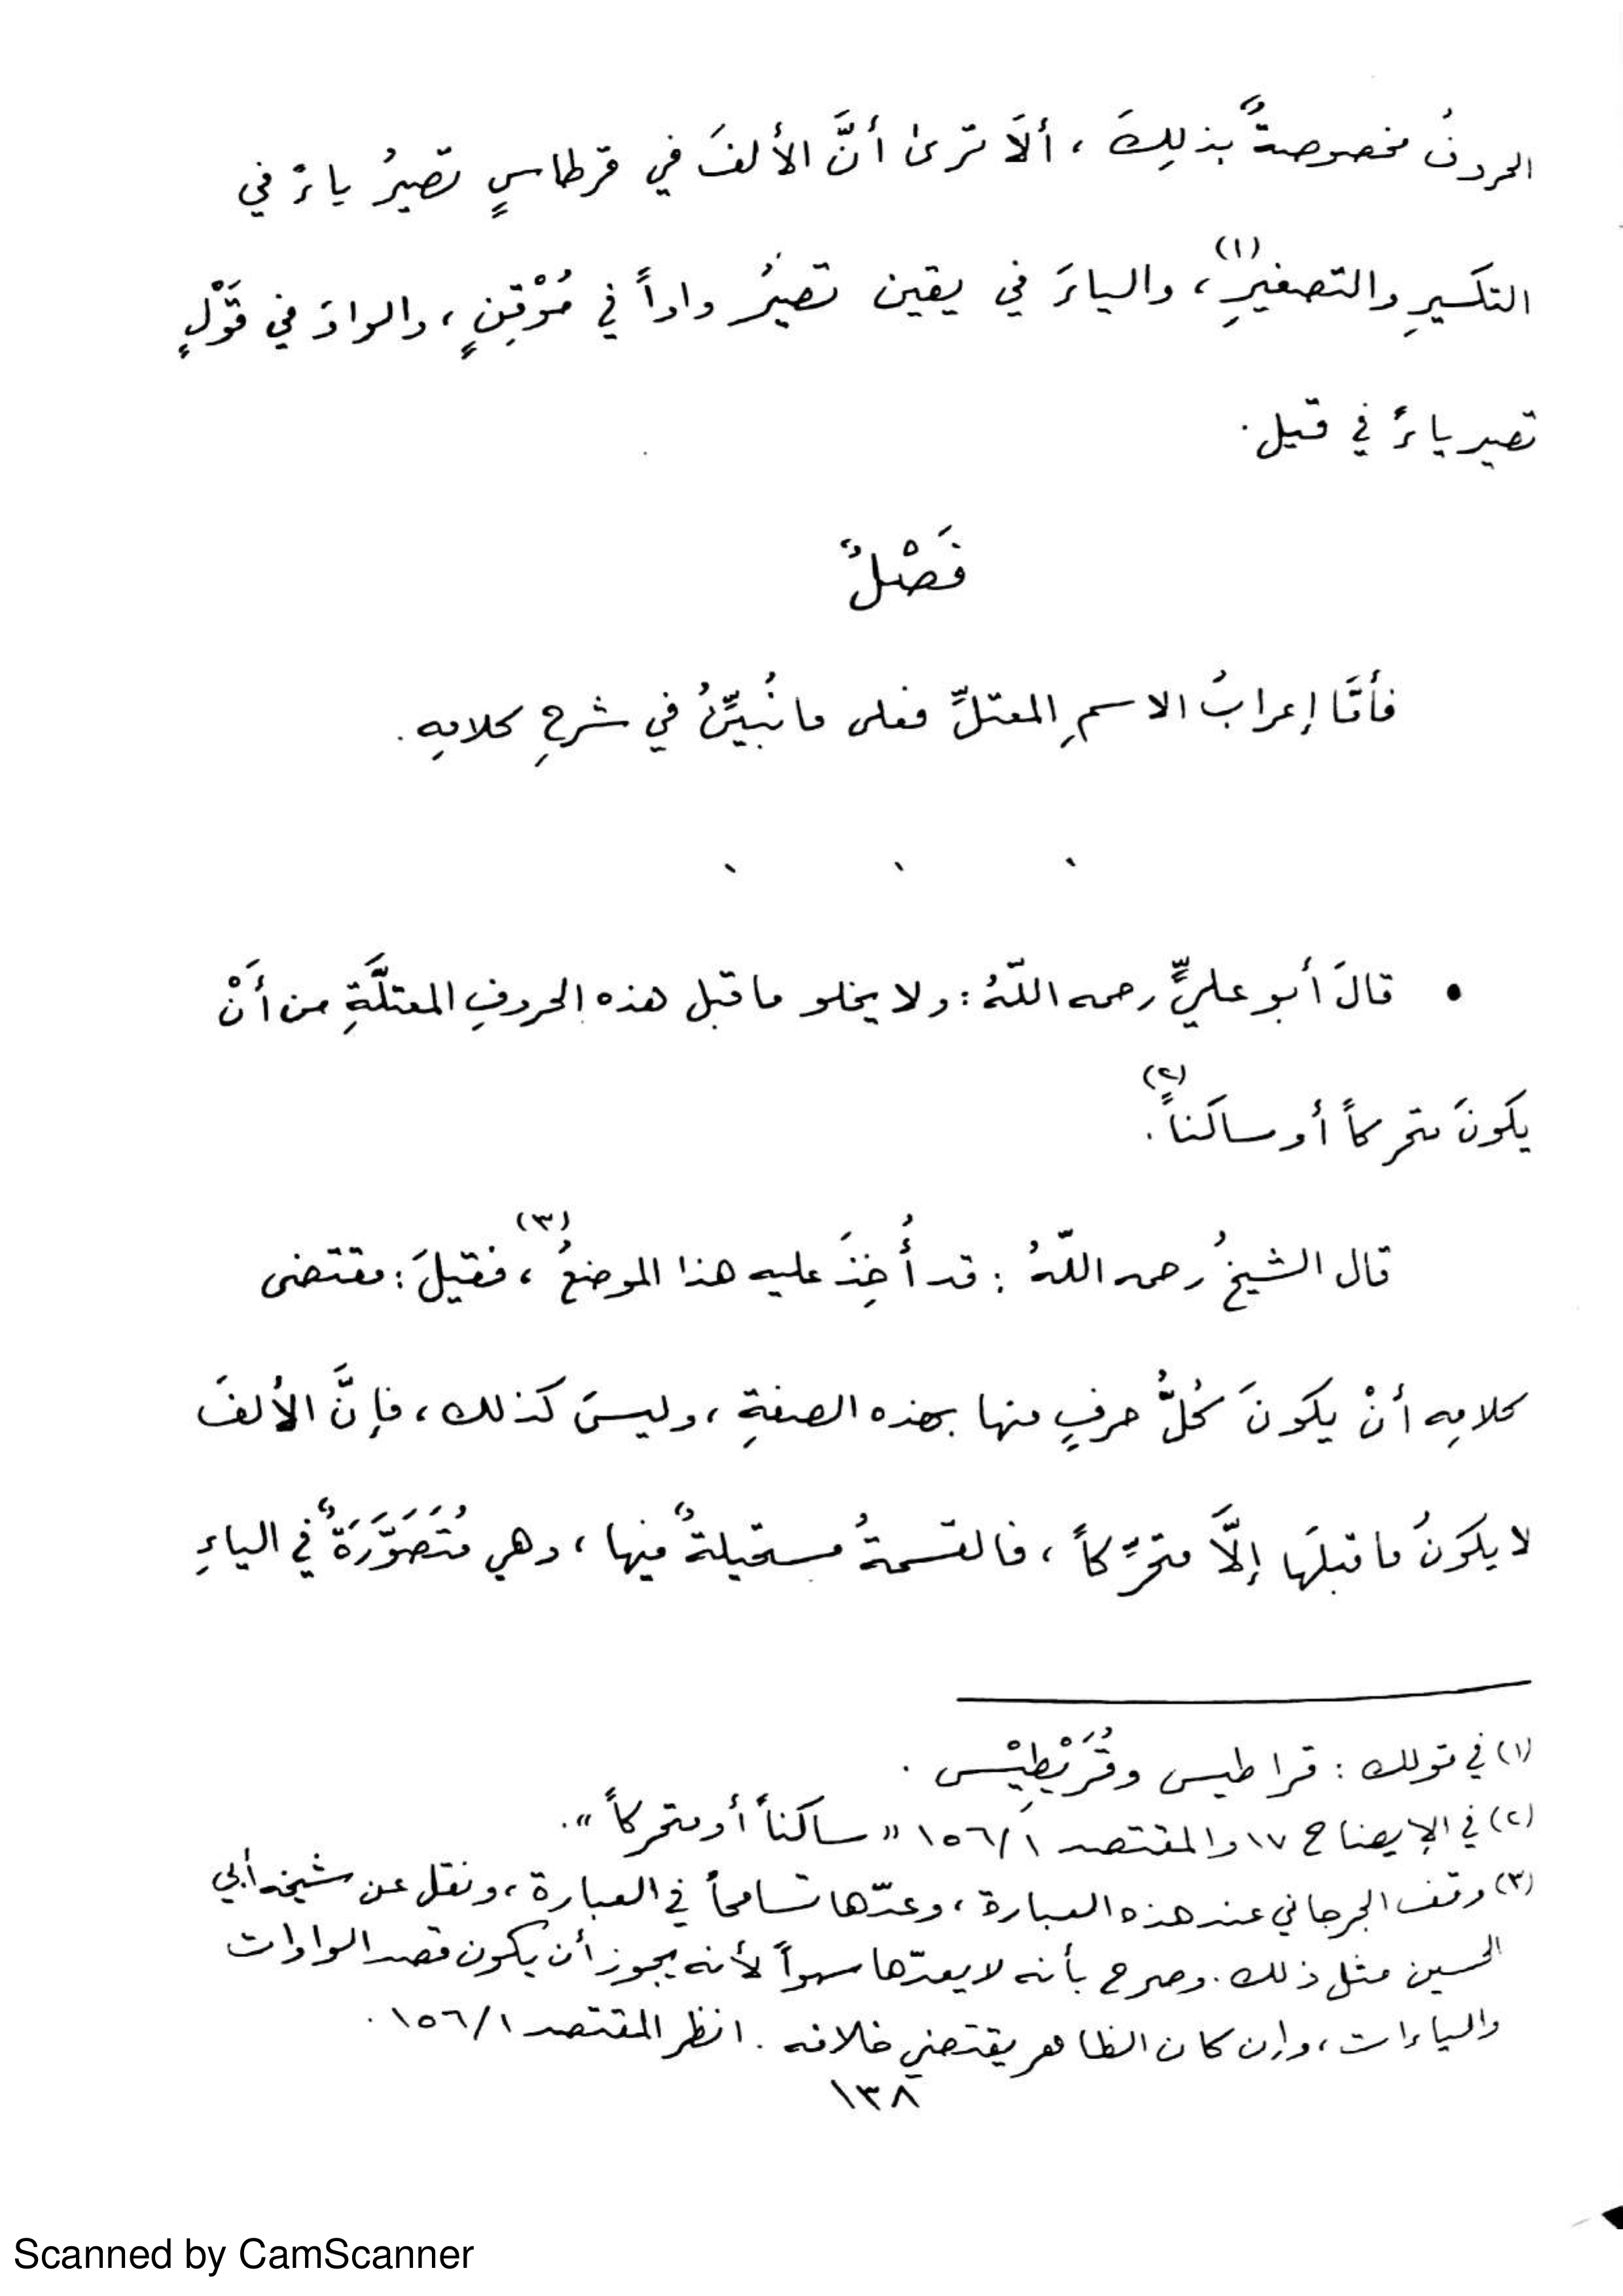 الحروفُ مخصوصةٌ بذلِكَ ، ألَا ترىٰ أنَّ الألفَ في قرطاسٍ تصيرُ ياءً في
التكسيرِ والتصغيرِ(١)، والياءَ في يقين تصيُر واواً في مُوْقِنٍ ، والواوَ في قَوْلٍ
تصير ياءً في قيل .
فَصْلٌ
فأمَّا إعرابُ الاسمِ المعتلِّ فعلى ما نُبيِّنُ في شرحِ كلامِهِ .
• قالَ أبو عليٍّ رحمه اللّهُ : ولا يخلو ما قبل هذه الحروفِ المعتلَّةِ من أَنْ
يكونَ متحركاً أو ساكناً(٢).
قال الشيخُ رحمه اللّهُ : قد أُخِذَ عليه هذا الموضعُ(٣)، فقيلَ : مقتضى
كلامِه أنْ يكونَ كُلُّ حرفٍ منها بهذه الصفةِ ، وليسَ كذلك ، فإنَّ الألفَ
لا يكونُ ما قبلَها إلَّا متحرِّكاً ، فالقسمةُ مستحيلةٌ فيها ، وهي مُتَصَوَّرَةٌ في الياءِ
(١) في قولك : قراطيس وقُرَيْطِيْس .
(٢) في الإيضاح ١٧ والمقتصد ١٥٦/١ « ساكناً أو متحركاً » .
(٣) وقف الجرجاني عند هذه العبارة ، وعدّها تسامحاً في العبارة ، ونقل عن شيخه أبي
الحسين مثل ذلك . وصرح بأنه لا يعدّها سهواً لأنه يجوز أن يكون قصد الواوات
والياءات ، وإن كان الظاهر يقتضي خلافه . انظر المقتصد ١٥٦/١ .
١٣٨
Scanned by CamScanner